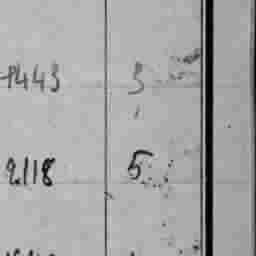 1443 3
2118 5